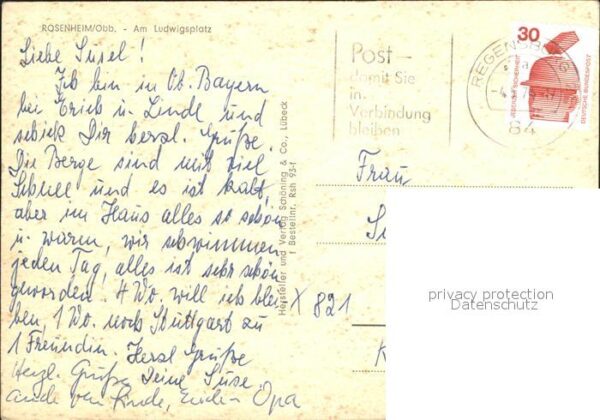 ROSENHEIM/Obb. - Am Ludwigsplatz
Liebe Susel!
Ich bin in Ob. Bayern
bei Erich u. Linde und
schick Dir herzl. Grüße.
Die Berge sind mit viel
Schnee und es ist kalt,
aber im Haus alles so schön
u. warm, wir schwimmen
jeden Tag, alles ist sehr schön
geworden. 4 Wo. will ich blei
ben, 1 Wo. noch Stuttgart zu
1 Freundin. Herzl Grüße
Herzl. Grüße Deine Suse
von Linde, Opa
Hersteller und Verlag Schöning & Co., Lübeck
Bestellnr. Rsh 95
X 821
Post –
damit Sie
in
Verbindung
bleiben
REGENSBURG
84
30
JEDERZEIT SICHERHEIT
DEUTSCHE BUNDESPOST
Frau
privacy protection
Datenschutz